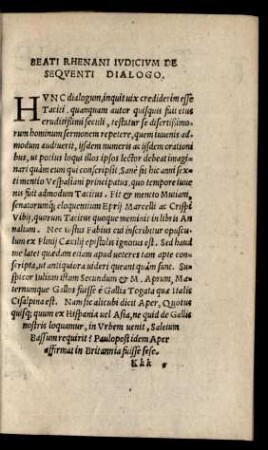 BEATI RHENANI IVDICIVM DE
SEQVENTI DIALOGO.
HVNC dialogum, inquit uix crediderim esse
Taciti. quanquam autor quisquis fuit eius
eruditissimi seculi, testatur se disertissimo-
rum hominum sermonem repetere, quem iuuenis ad-
modum audiuerit, ijsdem numeris ac ijsdem orationi-
bus, ut potius loqui illos ipsos lector debeat imagi-
nari quàm eum qui conscripsit. Sanè fit hic anni sex-
ti mentio Vespasiani principatus, quo tempore iuue-
nis fuit admodum Tacitus. Fit & mentio Mutiani,
senatorumq́; eloquentium Eprij Marcelli ac Crispi
Vibij, quorum Tacitus quoque meminit in libris An-
nalium. Nec Iustus Fabius cui inscribitur opuscu-
lum ex Plinij Cæcilij epistolis ignotus est. Sed haud
me latet quædam etiam apud ueteres tam aptè con-
scripta, ut antiquiora uideri queant quàm sunt. Su-
spicor Iulium istum Secundum & M. Aprum, Ma-
ternumque Gallos fuisse è Gallia Togata quæ Italis
Cisalpina est. Nam sic alicubi dicit Aper, Quotus
quisq; quum ex Hispania uel Asia, ne quid de Gallis
nostris loquamur, in Vrbem uenit, Saleium
Bassum requirit? Paulo post idem Aper
affirmat in Britannia fuisse sese.
Kkk